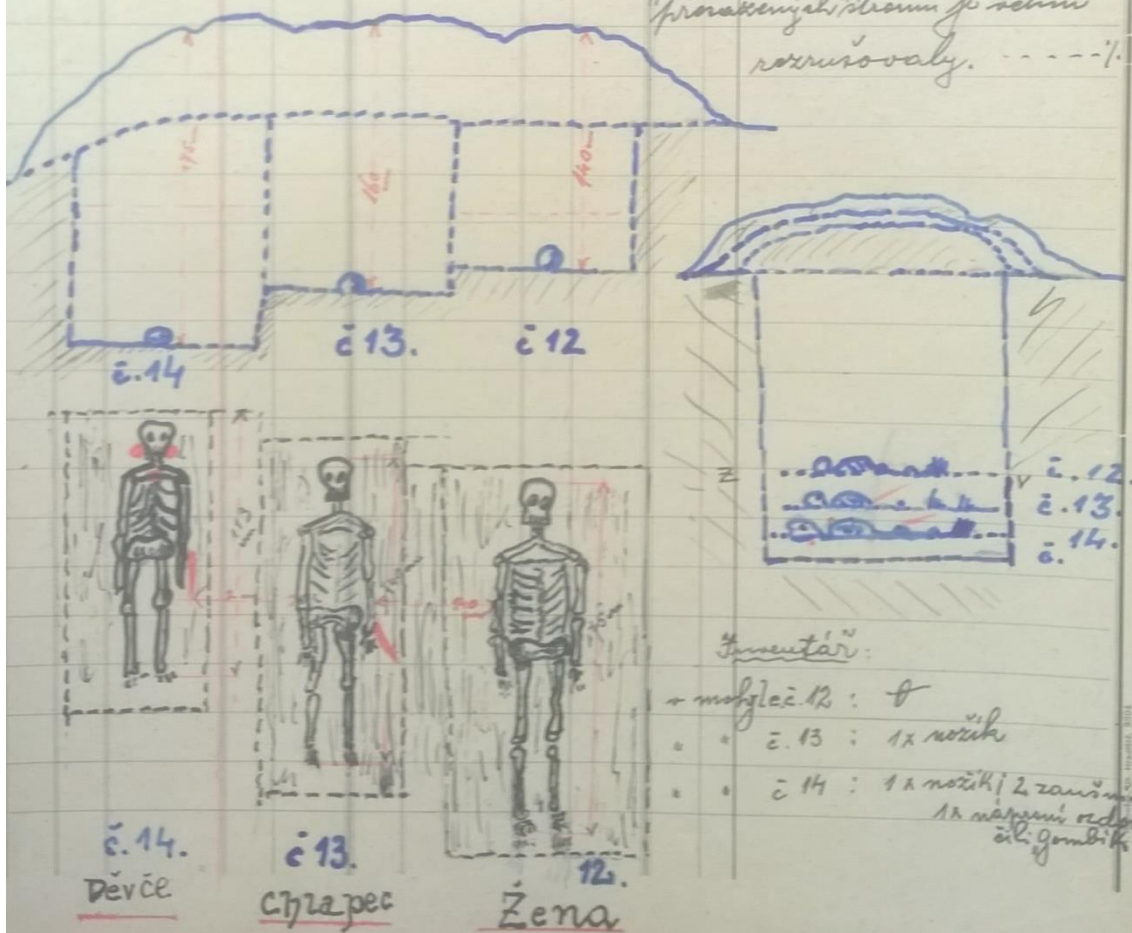 rozrušovaly. -----%.
175
160
140
č.14
č 13.
č 12
Z
V
č.12
č.13.
č. 14.
113
Inventář:
v mohyle č.12 : 0
" " č.13 : 1x nožík
" " č 14 : 1x nožík; 2 zaušn
1x náprsní ozdo
čili „Gombík
č.14.
č 13.
12.
Děvče
Chlapec
Žena